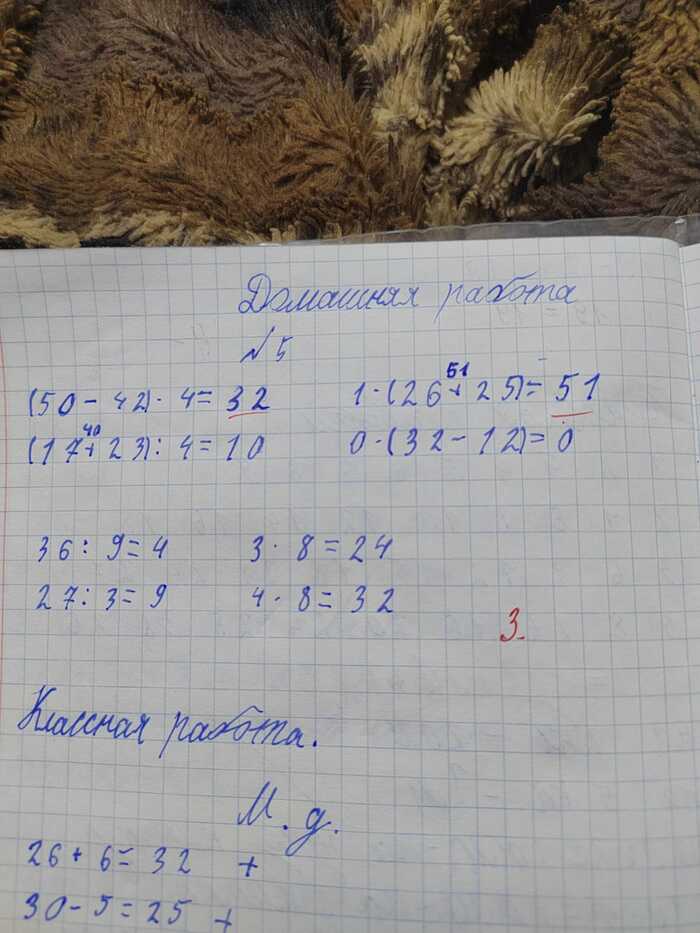 Домашняя работа
№ 5
(50 - 42) · 4 = 32 1 · (26 + 25) = 51
51
40
(17 + 23) : 4 = 10 0 · (32 - 12) = 0
36 : 9 = 4 3 · 8 = 24
27 : 3 = 9 4 · 8 = 32
3
Классная работа.
М. д.
26 + 6 = 32 +
30 - 5 = 25 +